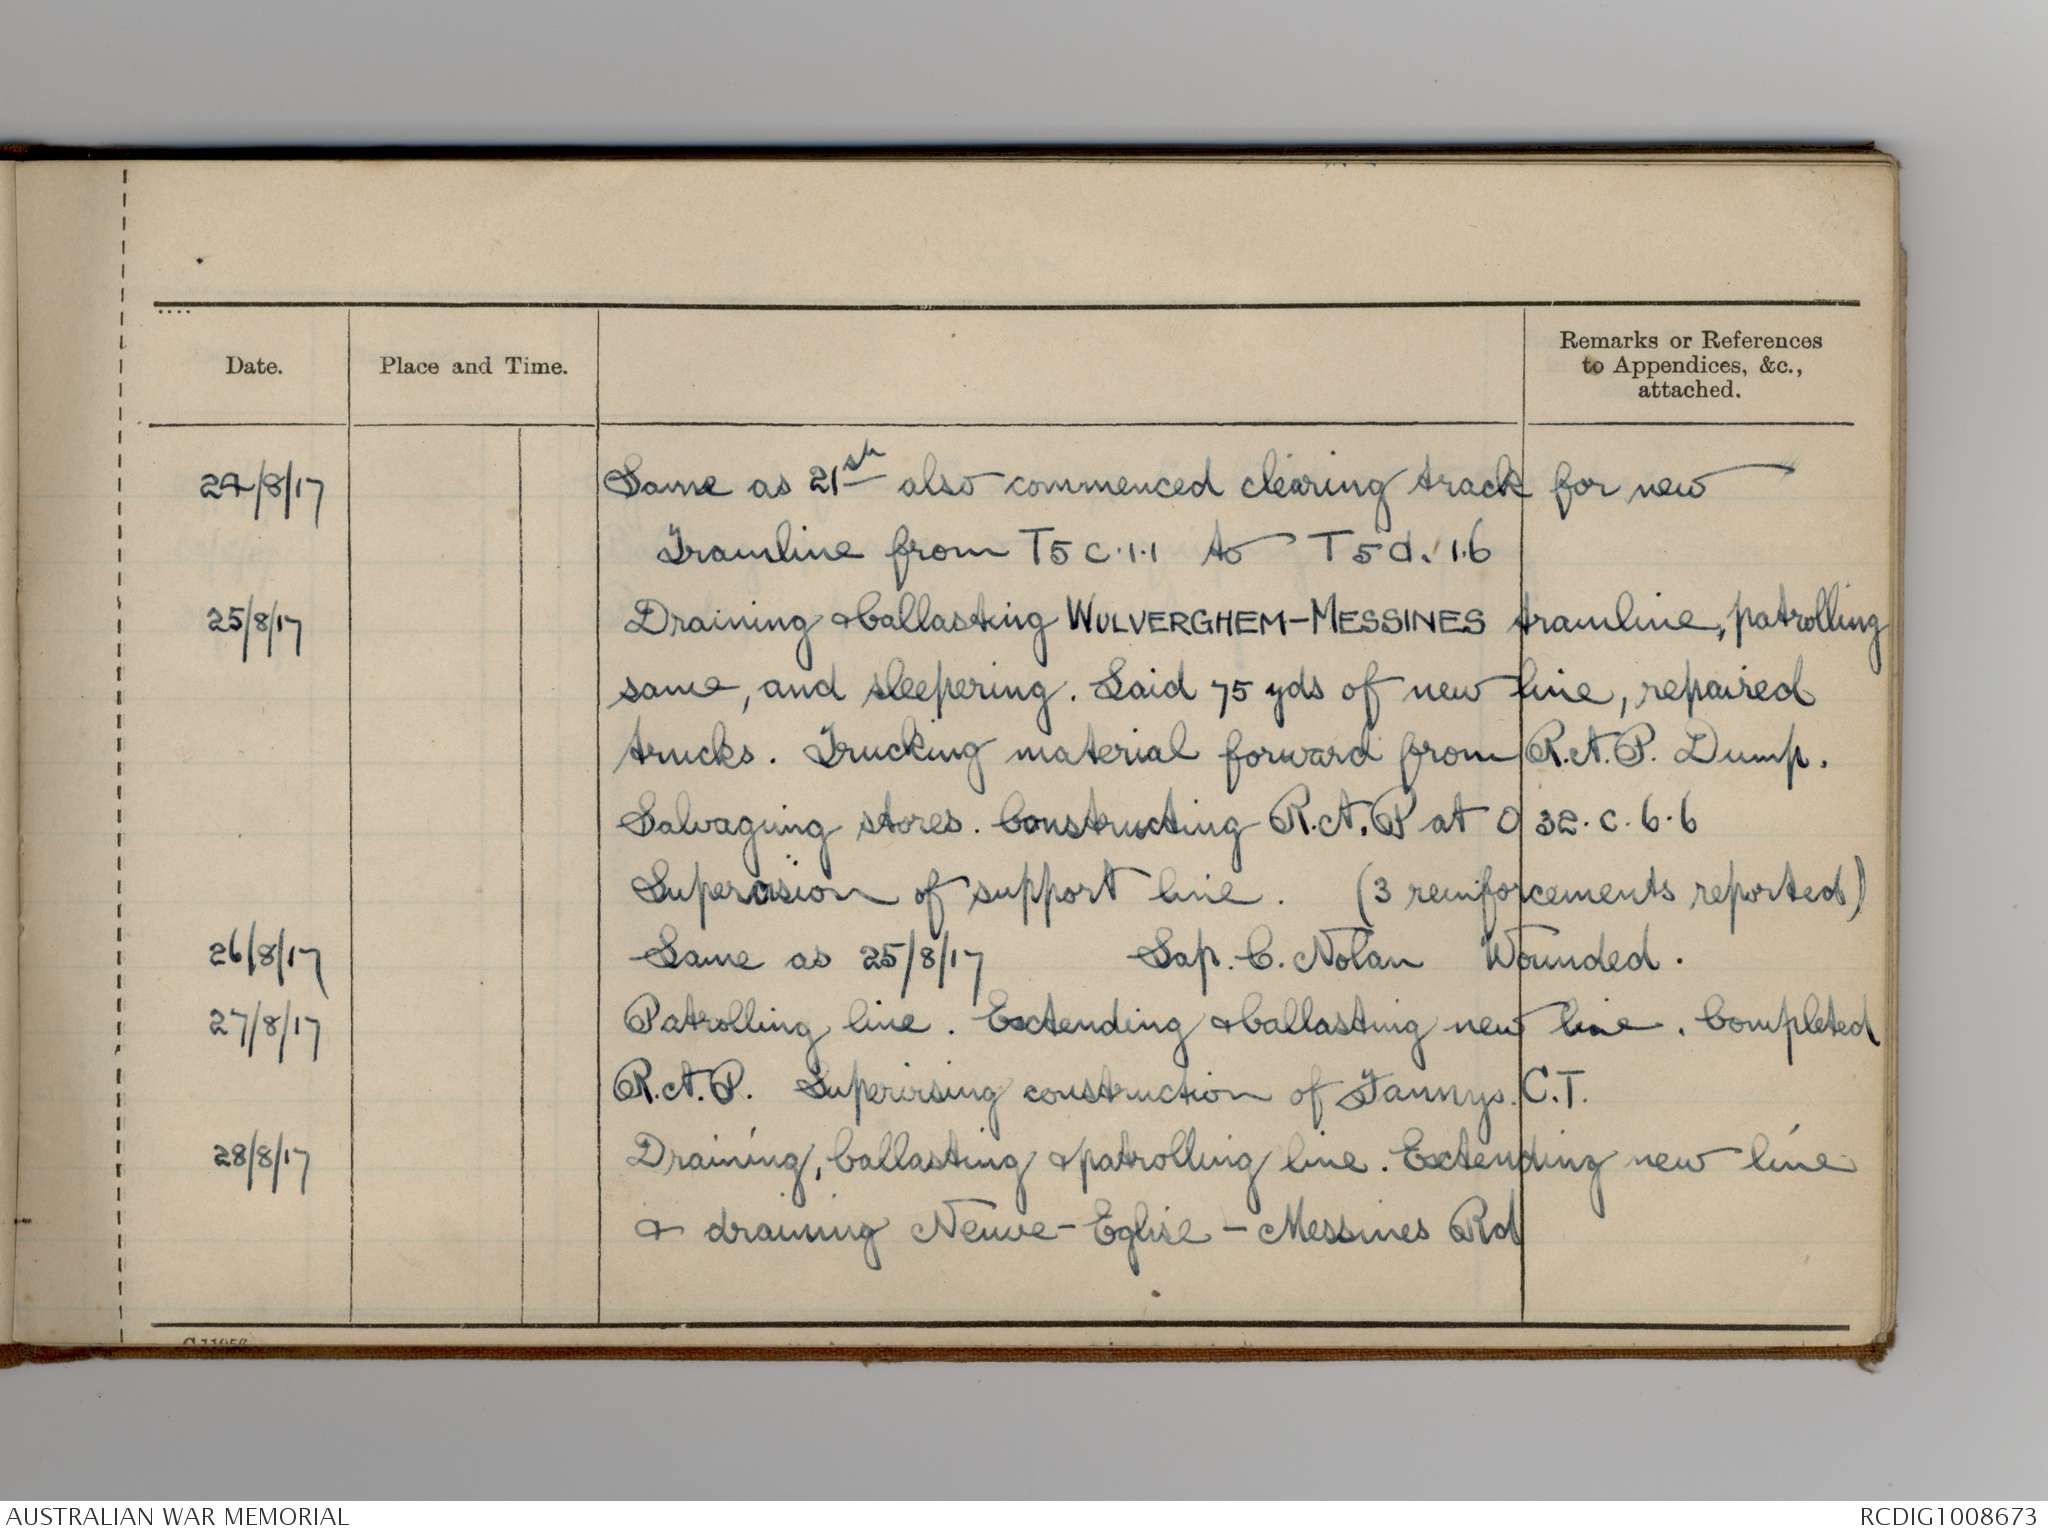 Date.
Place and Time.
Remarks or References
to Appendices, &c.,
attached.
24/8/17 Same as 21st also commenced clearing track for new
Tramline from T5 c.1.1 to T5 d.1.6
25/8/17 Draining & ballasting WULVERGHEM-MESSINES tramline, patrolling
same, and sleepering. Laid 75 yds of new line, repaired
trucks. Trucking material forward from R.A.P. Dump.
Salvaging stores. Constructing R.A.P at O 32.c.6.6
Supervision of support line. (3 reinforcements reported)
26/8/17 Same as 25/8/17 Sap. C. Nolan Wounded.
27/8/17 Patrolling line. Extending & ballasting new line. Completed
R.A.P. Supervising construction of Fannys. C.T.
28/8/17 Draining, ballasting & patrolling line. Extending new line
& draining Neuve-Eglise-Messines Rd
AUSTRALIAN WAR MEMORIAL
RCDIG1008673